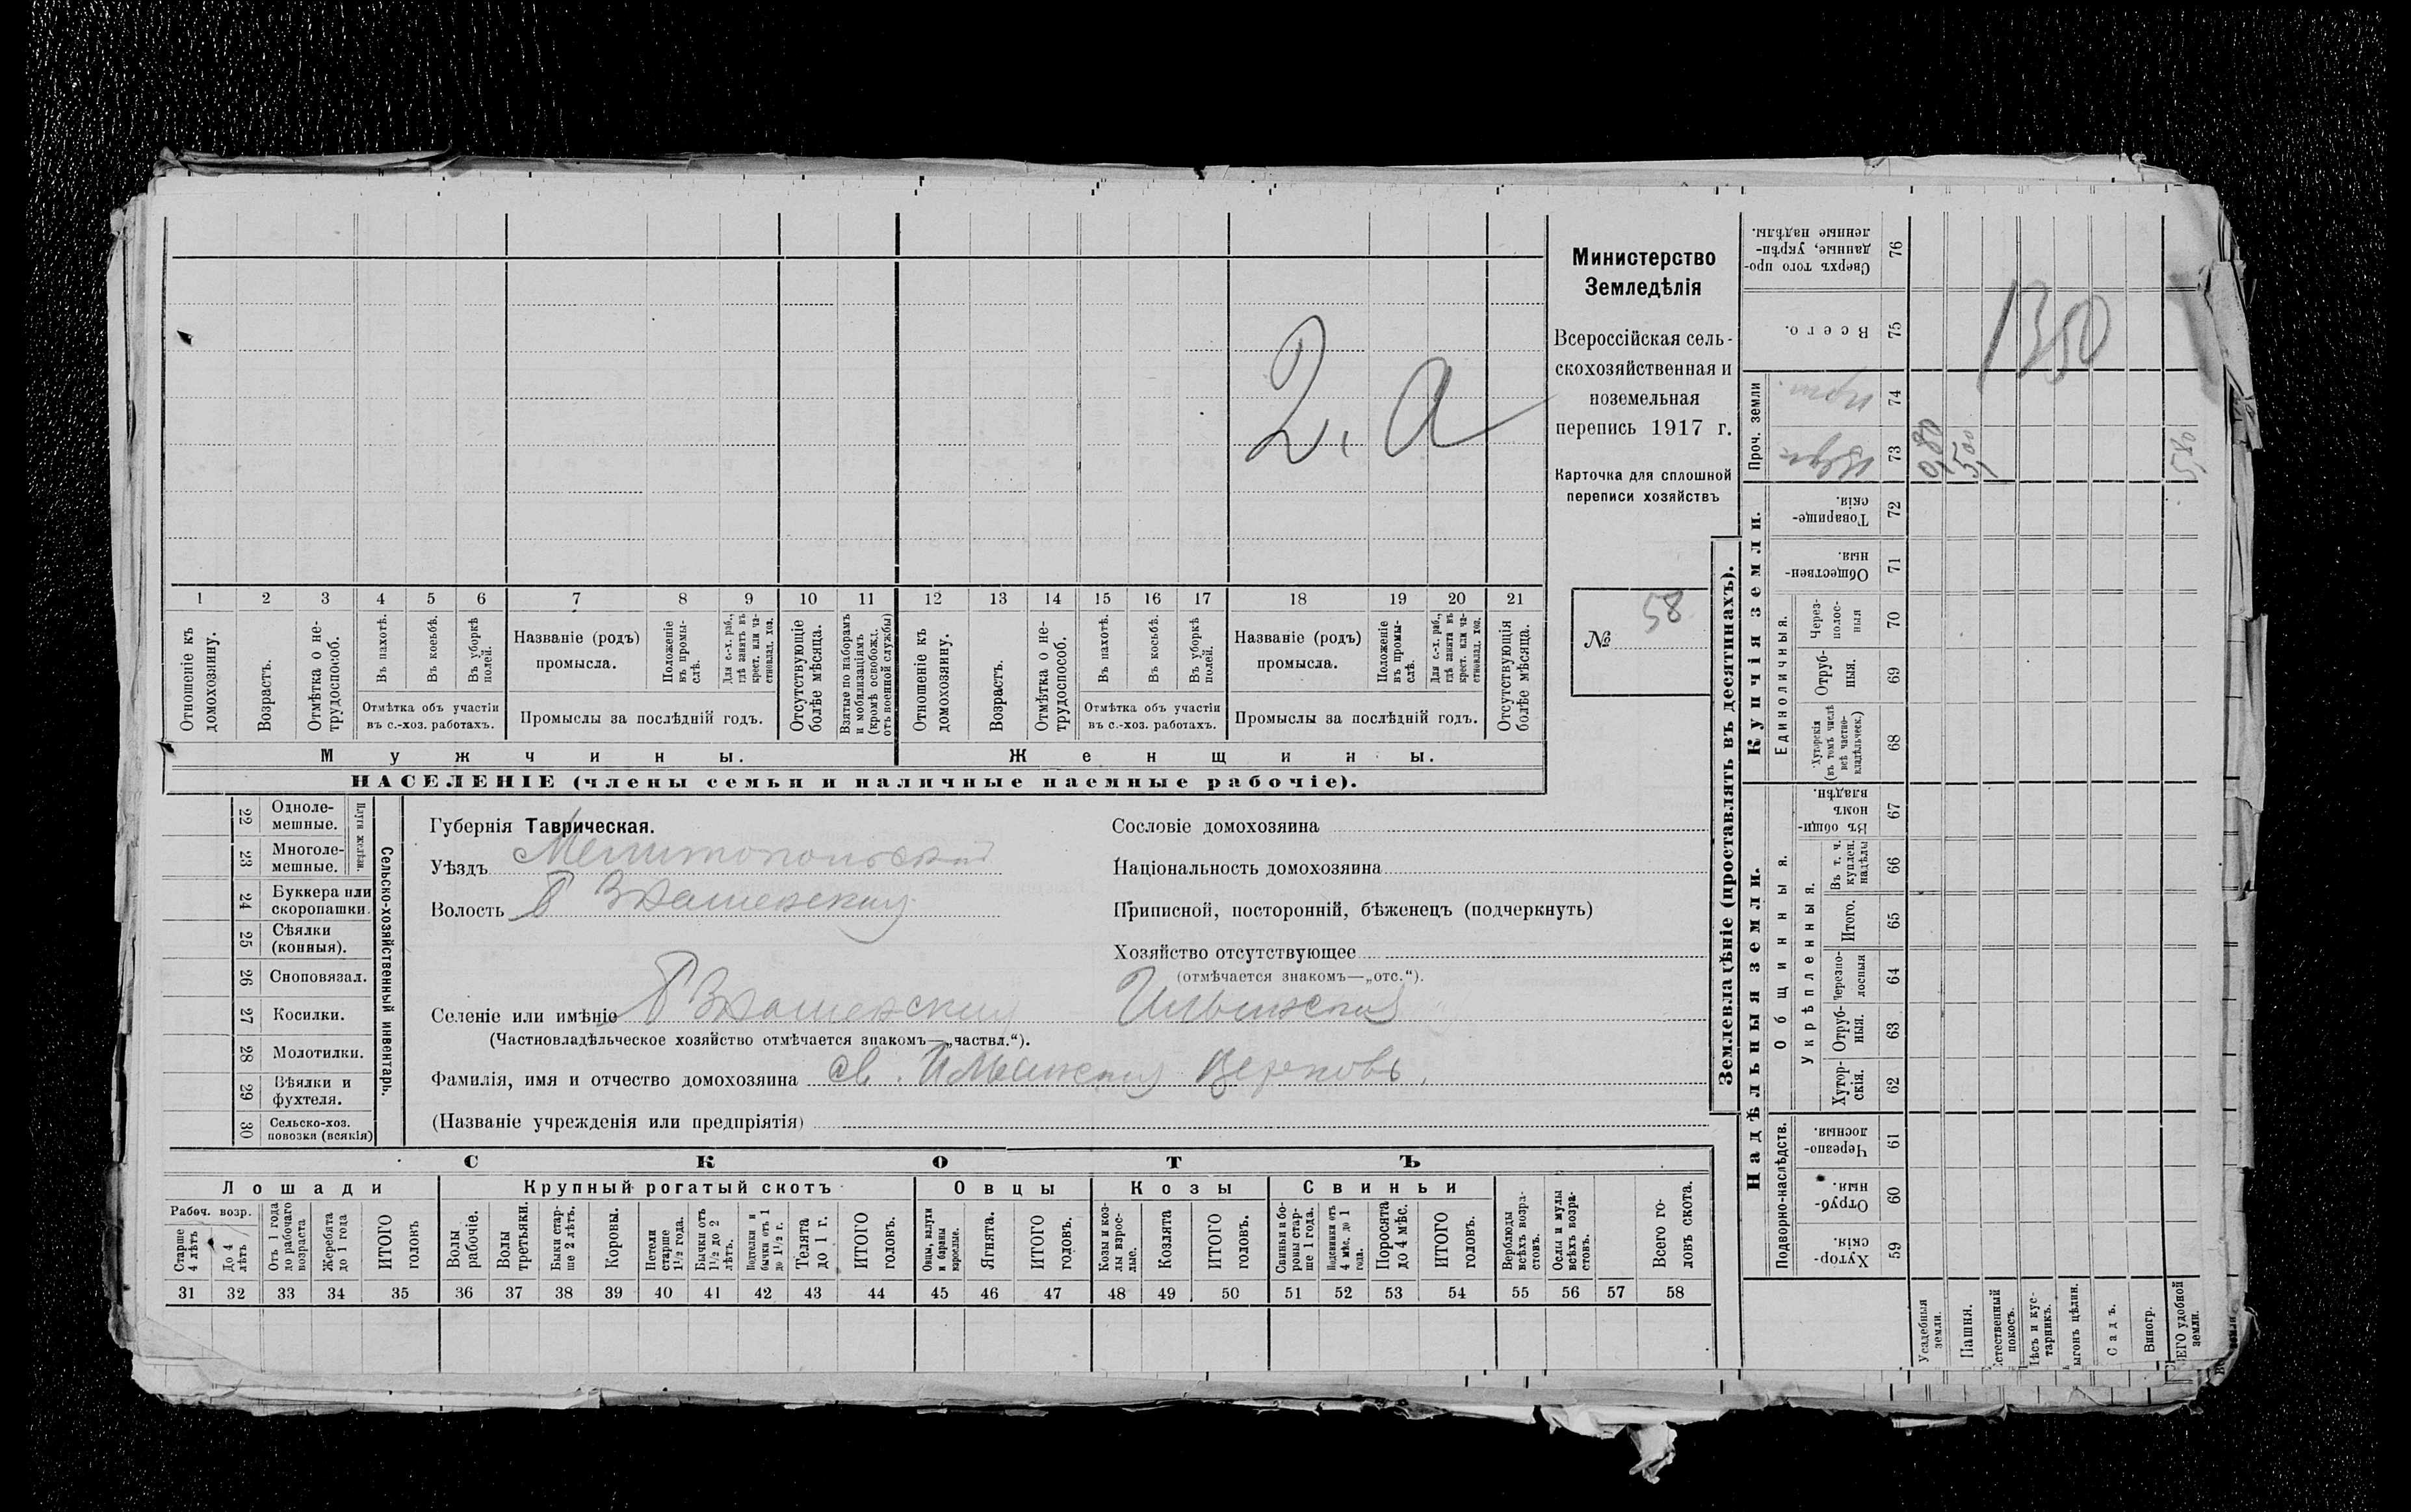 2. а
1 2 3 4 5 6 7 8 9 10 11 12 13 14 15 16 17 18 19 20 21
Отношеніе къ домохозяину.
Возрастъ.
Отмѣтка о нетрудоспособ.
Въ пахотѣ.
Въ косьбѣ.
Въ уборкѣ полей.
Отмѣтка объ участіи
въ с.-хоз. работахъ.
Названіе (родъ)
промысла.
Положеніе въ промыслѣ.
Для с.-х. раб., гдѣ занятъ въ крест. или частновлад. хоз.
Промыслы за послѣдній годъ.
Отсутствующіе болѣе мѣсяца.
Взятые по наборамъ и мобилизаціямъ (кромѣ освобожд. отъ военной службы)
Отношеніе къ домохозяину.
Возрастъ.
Отмѣтка о нетрудоспособ.
Въ пахотѣ.
Въ косьбѣ.
Въ уборкѣ полей.
Отмѣтка объ участіи
въ с.-хоз. работахъ.
Названіе (родъ)
промысла.
Положеніе въ промыслѣ.
Для с.-х. раб., гдѣ занята въ крест. или частновлад. хоз.
Промыслы за послѣдній годъ.
Отсутствующія болѣе мѣсяца.
Мужчины.
Женщины.
НАСЕЛЕНІЕ (члены семьи и наличные наемные рабочіе).
Министерство
Земледѣлія
Всероссійская сель-
скохозяйственная и
поземельная
перепись 1917 г.
Карточка для сплошной
переписи хозяйствъ
№ 58
22 Одноле-
мешные.
23 Многоле-
мешные.
Плуги желѣзн.
24 Буккера или
скоропашки.
25 Сѣялки
(конныя).
26 Сноповязал.
27 Косилки.
28 Молотилки.
29 Вѣялки и
фухтеля.
30 Сельско-хоз.
повозки (всякія)
Сельско-хозяйственный инвентарь.
Губернія Таврическая.
Уѣздъ Мелитопольскій
Волость
Селеніе или имѣніе
(Частновладѣльческое хозяйство отмѣчается знакомъ—„частвл.“).
Фамилія, имя и отчество домохозяина св. Ильинская Церковь.
(Названіе учрежденія или предпріятія)
Сословіе домохозяина
Національность домохозяина
Приписной, посторонній, бѣженецъ (подчеркнуть)
Хозяйство отсутствующее
(отмѣчается знакомъ—„отс.“).
СКОТЪ
Лошади
Крупный рогатый скотъ
Овцы
Козы
Свиньи
Рабоч. возр.
Старше 4 лѣтъ
До 4 лѣтъ
Отъ 1 года до рабочаго возраста
Жеребята до 1 года
ИТОГО головъ
Волы рабочіе.
Волы третьяки.
Быки старше 2 лѣтъ.
Коровы.
Нетели старше 1½ года.
Бычки отъ 1½ до 2 лѣтъ.
Подтелки и бычки отъ 1 до 1½ г.
Телята до 1 г.
ИТОГО головъ.
Овцы, валухи и бараны взрослые.
Ягнята.
ИТОГО головъ.
Козы и козлы взрослые.
Козлята
ИТОГО головъ.
Свиньи и бороны старше 1 года.
Подсвинки отъ 4 мѣс. до 1 года.
Поросята до 4 мѣс.
ИТОГО головъ.
Верблюды всѣхъ возрастовъ.
Ослы и мулы всѣхъ возрастовъ.
Всего головъ скота.
31 32 33 34 35 36 37 38 39 40 41 42 43 44 45 46 47 48 49 50 51 52 53 54 55 56 57 58
Землевладѣніе (проставлять въ десятинахъ).
Надѣльныя земли.
Купчія земли.
Проч. земли
Подворно-наслѣдств.
Общинныя.
Укрѣпленныя.
Единоличныя.
Хуторскія. 59
Отрубныя. 60
Черезполосныя. 61
Хуторскія. 62
Отрубныя. 63
Черезполосныя 64
Итого. 65
Въ т. ч. куплен. надѣлы 66
Въ общиномъ владѣн. 67
Хуторскія (въ томъ числѣ всѣ частновладѣльческ.) 68
Отрубныя. 69
Черезполосныя 70
Общественныя. 71
Товарищескія. 72
73
74
Всего. 75
Сверхъ того проданные, укрѣпленные надѣлы. 76
0,80
5,00
5,80
1350
Усадебныя земли.
Пашня.
стественный покосъ.
Лѣсъ и кустарникъ.
ыгонъ цѣлин.
Садъ.
Виногр.
ЕГО удобной земли.